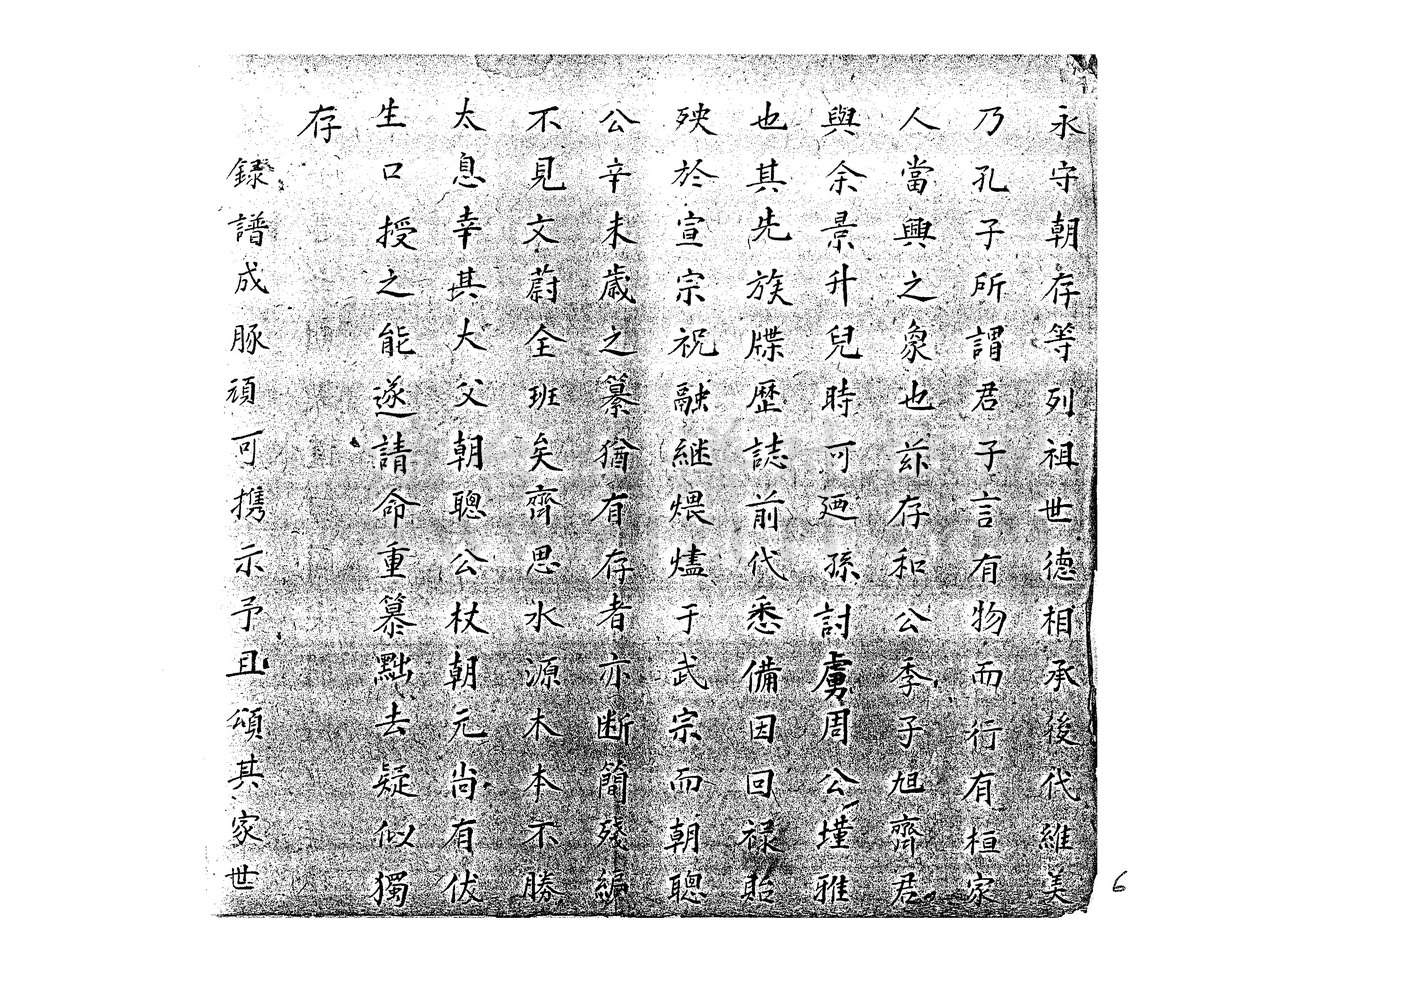 永守朝存等列祖世德相承後代維美
乃孔子所謂君子言有物而行有桓家
人當興之象也茲存和公季子旭齊君
與余景升兒時可廼孫討虜周公墐雅
也其先族牒歷誌前代悉備因回祿貽
殃於宣宗祝融継煨燼于武宗而朝聰
公辛未歲之纂猶有存者亦断簡殘編
不見文蔚全班矣齊思水源木本不勝
太息幸其大父朝聰公杖朝元尚有伏
生口授之能遂請命重纂點去疑似獨
存
録譜成豚頑可携示予且頌其家世
6